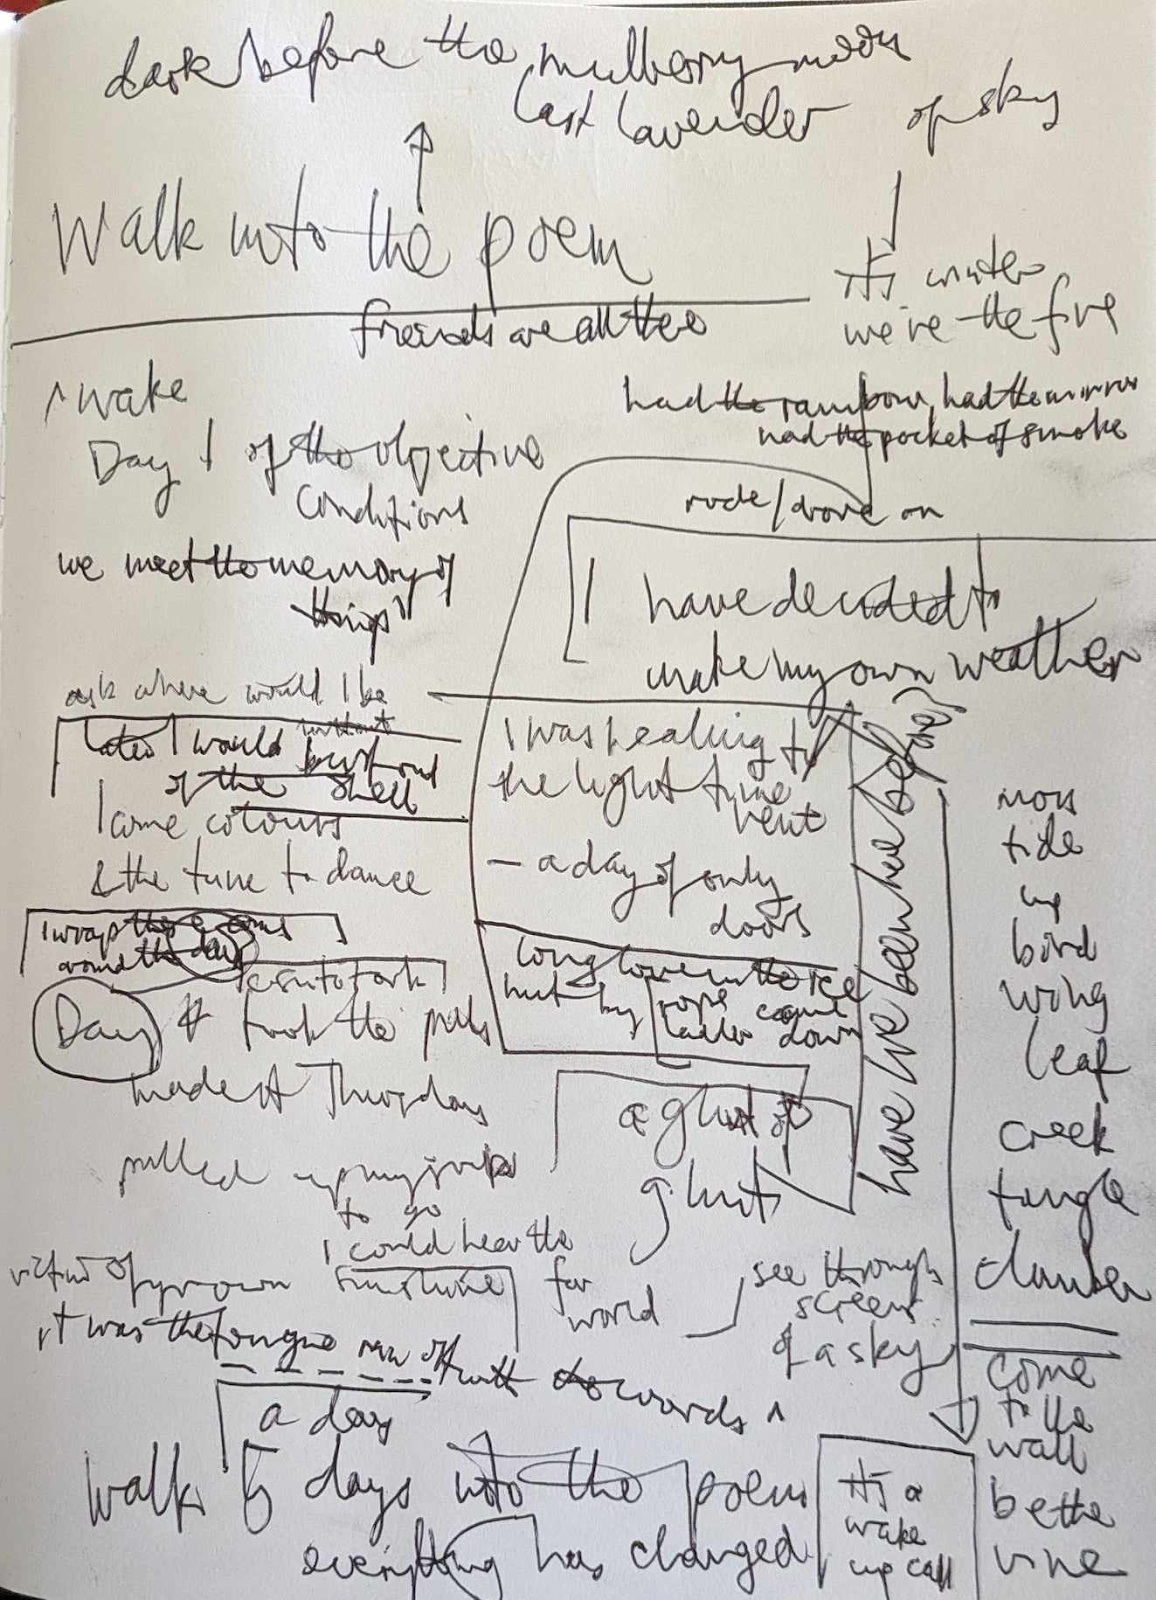 dark before the mulberry moon
last lavender of sky
Walk into the poem
it's winter
we're the fire
friends are all the
had the rainbow, had the mirror
had the pocket of smoke
rode/drove on
I have decided to
make my own weather
I wake
Day 1 of the objective
conditions
we meet the memory of
things
ask where would I be
without
later I would burst out
of the shell
I come colours
& the tune to dance
I wrap these arms
around the day
Day took the pills
made it Thursday
pulled up my
to go
I could hear the
far
world
victim of my own sunshine
it was the tongue ran off
with the words
I was healing to
the light time
rent
- a day of only
doors
long love in the ice
hut by rope came
ladder down
a glut of
gluts
have we been here before?
see through
screens
of a sky
moss
tide
up
bird
wing
leaf
creek
tangle
clamber
come
to the
wall
be the
vine
a day
walk 5 days into the poem
everything has changed
it's a
wake
up call